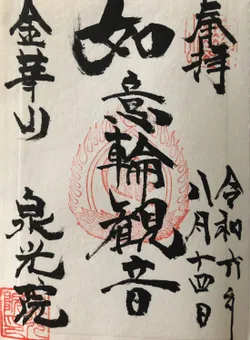 奉拝
令和六年
八月十四日
如意輪観音
金華山
泉光院